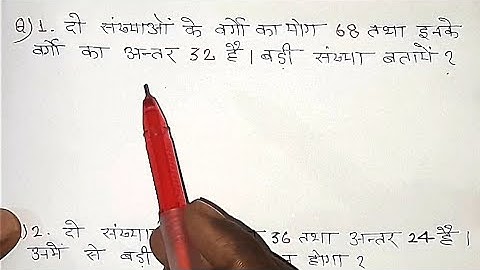 Q) 1. दो संख्याओं के वर्गो का योग 68 तथा इनके
वर्गो का अन्तर 32 है । बड़ी संख्या बतायें ?
) 2. दो संख्या 36 तथा अन्तर 24 है ।
उनमें से बड़ी होगा ?